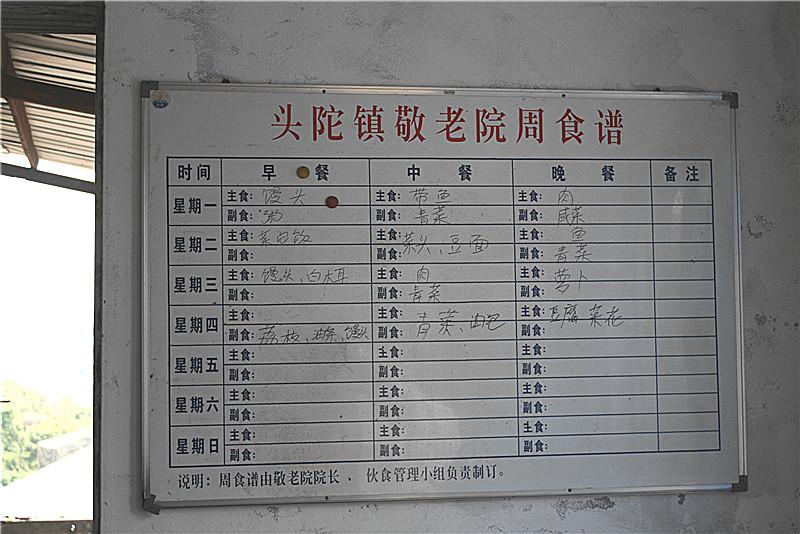 头陀镇敬老院周食谱
时间 早餐 中餐 晚餐 备注
星期一 主食：馒头 主食：带鱼 主食：肉
副食：粥 副食：青菜 副食：咸菜
星期二 主食：菜泡饭 主食： 主食：鱼
副食： 副食：菜头、豆面 副食：青菜
星期三 主食：馒头、白木耳 主食：肉 主食：萝卜
副食： 副食：青菜 副食：
星期四 主食： 主食： 主食：豆腐 菜花
副食：荔枝、油条、馒头 副食：青菜、油包 副食：
星期五 主食： 主食： 主食：
副食： 副食： 副食：
星期六 主食： 主食： 主食：
副食： 副食： 副食：
星期日 主食： 主食： 主食：
副食： 副食： 副食：
说明：周食谱由敬老院院长、伙食管理小组负责制订。